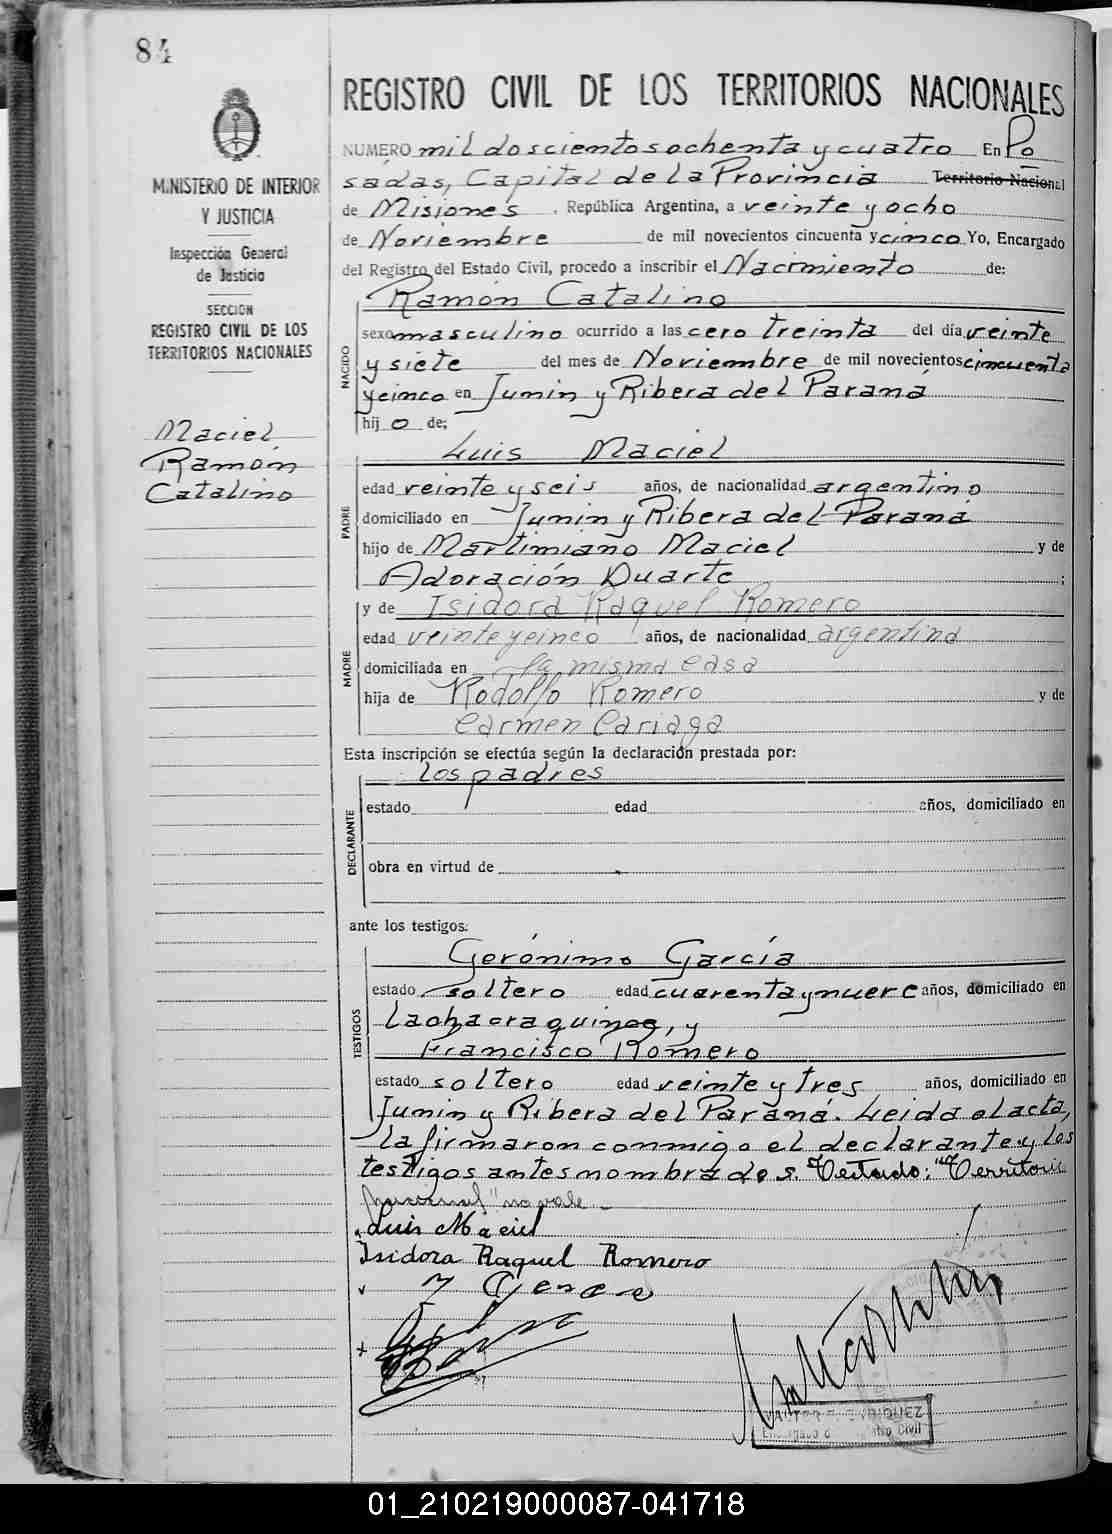 84
MINISTERIO DE INTERIOR
Y JUSTICIA
Inspección General
de Justicia
SECCION
REGISTRO CIVIL DE LOS
TERRITORIOS NACIONALES
Maciel
Ramón
Catalino
REGISTRO CIVIL DE LOS TERRITORIOS NACIONALES
NUMERO mil doscientos ochenta y cuatro En Po
sadas, Capital de la Provincia Territorio Nacional
de Misiones , República Argentina, a veinte y ocho
de Noviembre de mil novecientos cincuenta y cinco Yo, Encargado
del Registro del Estado Civil, procedo a inscribir el Nacimiento de:
NACIDO
Ramón Catalino
sexo masculino ocurrido a las cero treinta del día veinte
y siete del mes de Noviembre de mil novecientos cincuenta
y cinco en Junin y Ribera del Paraná
hij o de:
PADRE
Luis Maciel
edad veinte y seis años, de nacionalidad argentino
domiciliado en Junin y Ribera del Paraná
hijo de Martimiano Maciel y de
Adoración Duarte ;
MADRE
y de Isidora Raquel Romero
edad veinte y cinco años, de nacionalidad argentina
domiciliada en la misma casa
hija de Rodolfo Romero y de
Carmen Cariaga
Esta inscripción se efectúa según la declaración prestada por:
DECLARANTE
los padres
estado edad años, domiciliado en
obra en virtud de
ante los testigos:
TESTIGOS
Gerónimo García
estado soltero edad cuarenta y nueve años, domiciliado en
, y
Francisco Romero
estado soltero edad veinte y tres años, domiciliado en
Junin y Ribera del Paraná. Leida el acta,
la firmaron conmigo el declarante y los
testigos antes nombrados. Testado: "Territorio
nacional" no vale
Luis Maciel
Isidora Raquel Romero
Encargado d Registro Civil
01_210219000087-041718